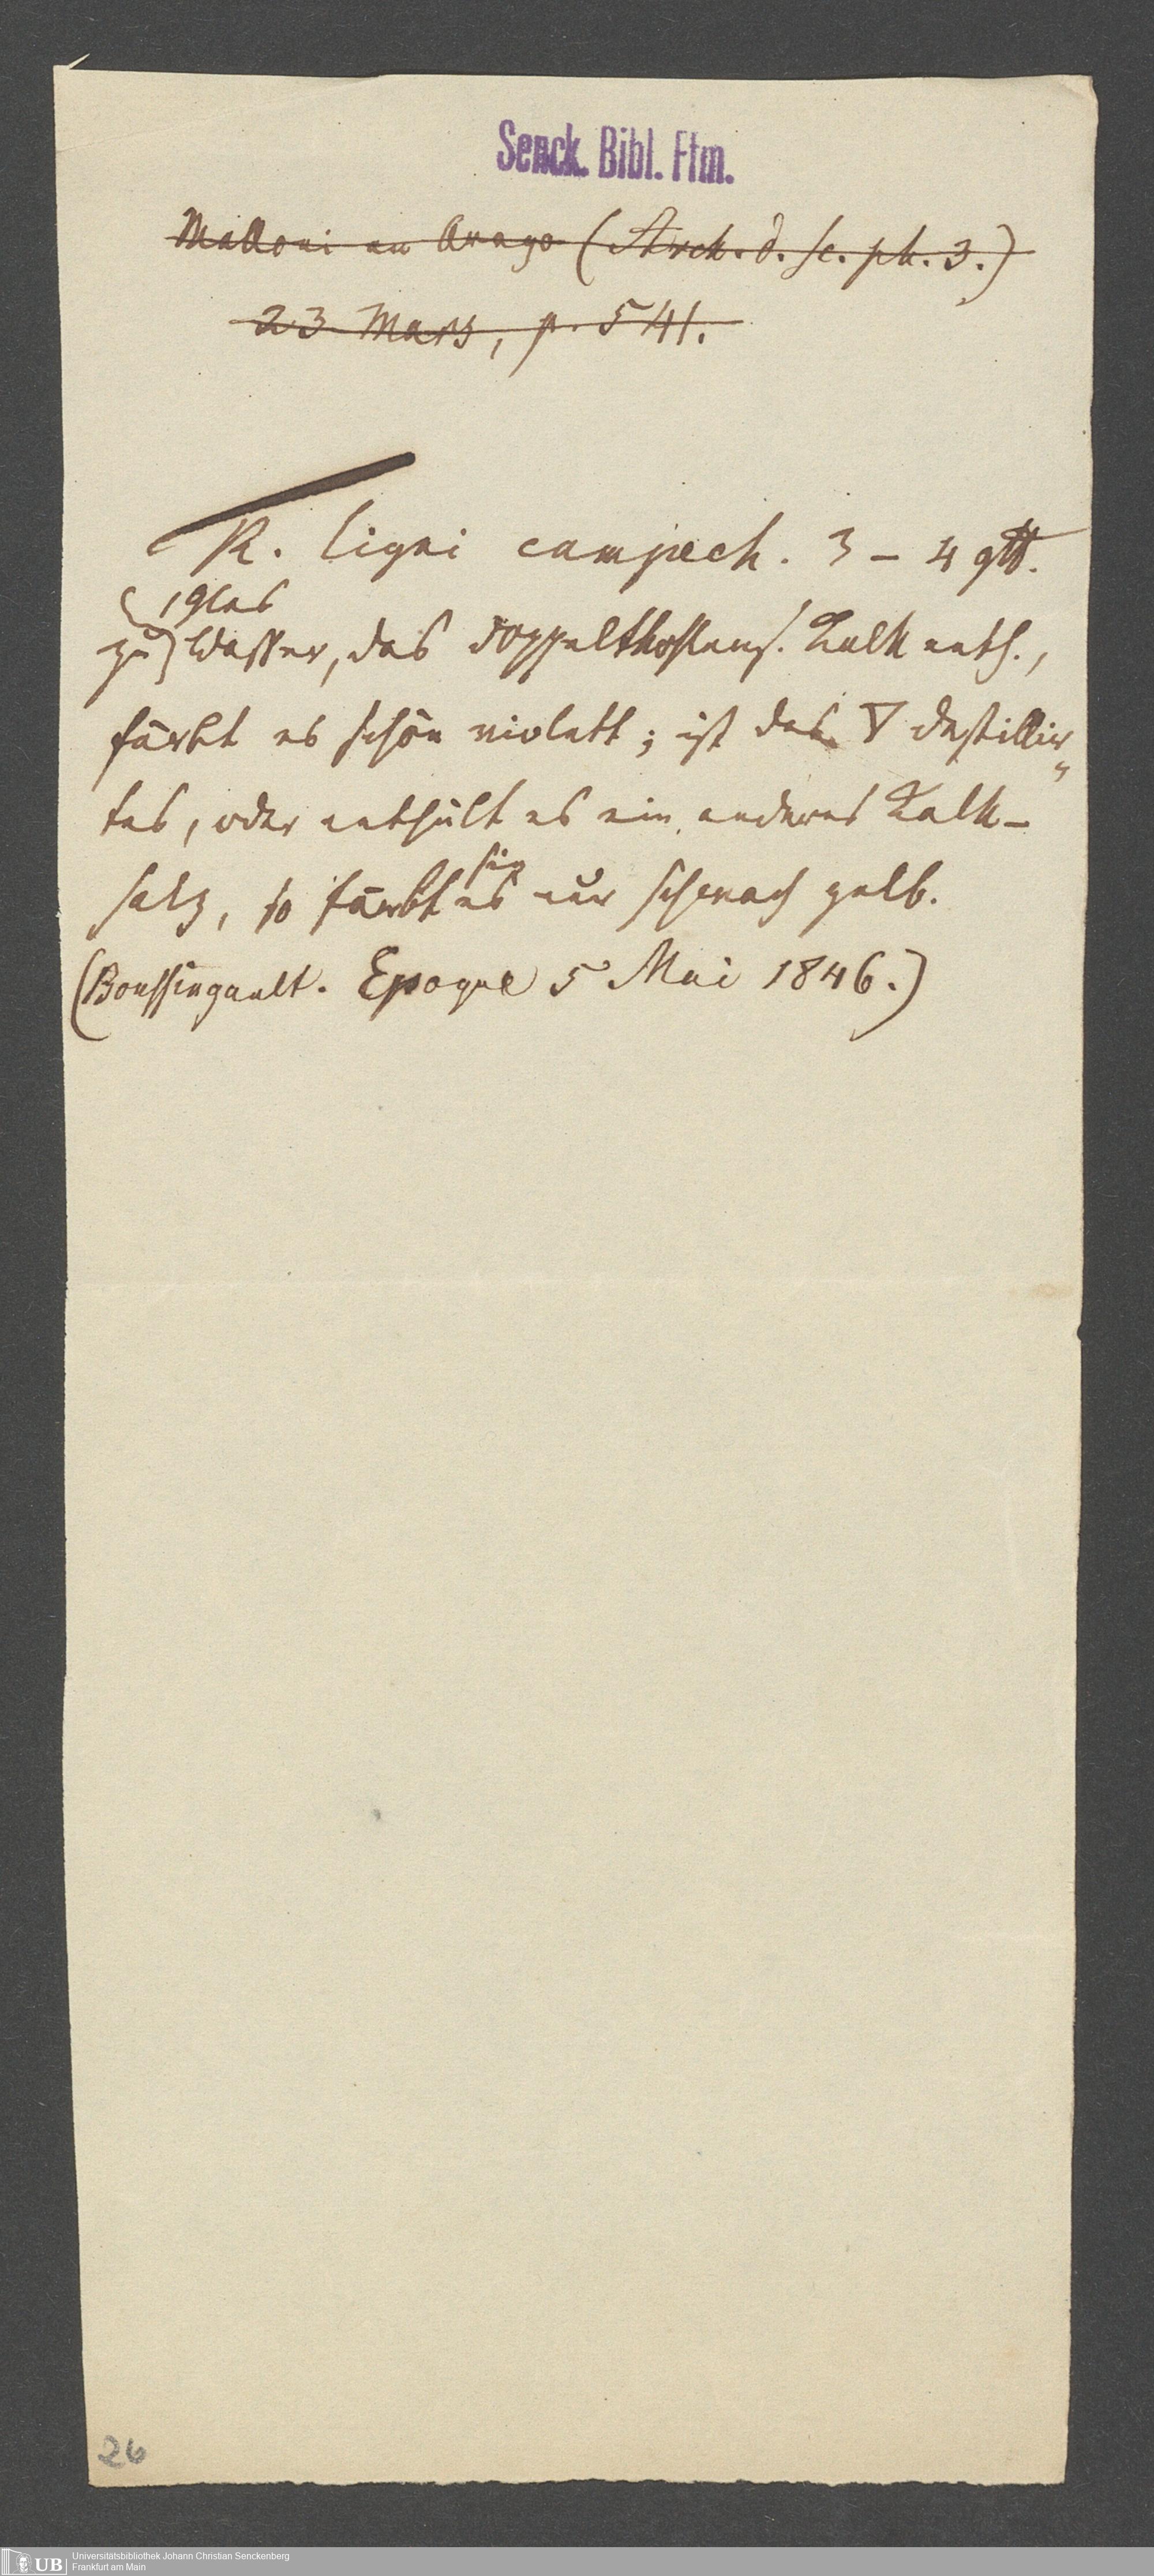 Senck. Bibl. Ffm.
Melloni an Arago (Arch. d. sc. ph. 3.)
23 Mars, p. 541.
R. ligni campech. 3 – 4 gtt.
1 Glas
zu Wasser, das doppeltkohlens. Kalk enth.,
färbt es schön violett; ist das ▽ destillir
tes, oder enthält es ein anderes Kalk-
sich
salz, so färbt es nur schwach gelb.
(Boussingault. Epoque 5 Mai 1846.)
26
UB Universitätsbibliothek Johann Christian Senckenberg
Frankfurt am Main